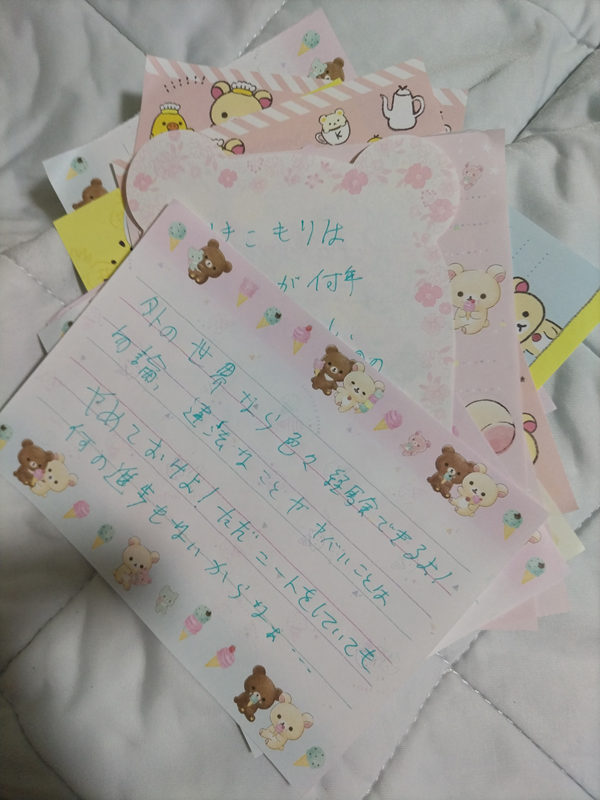 きこもりは
が何年
外の世界なら色々経験できるよ!
勿論、違法なことやヤバいことは
やめておけよ!ただニートをしていても
何の進歩もないからなぁ…